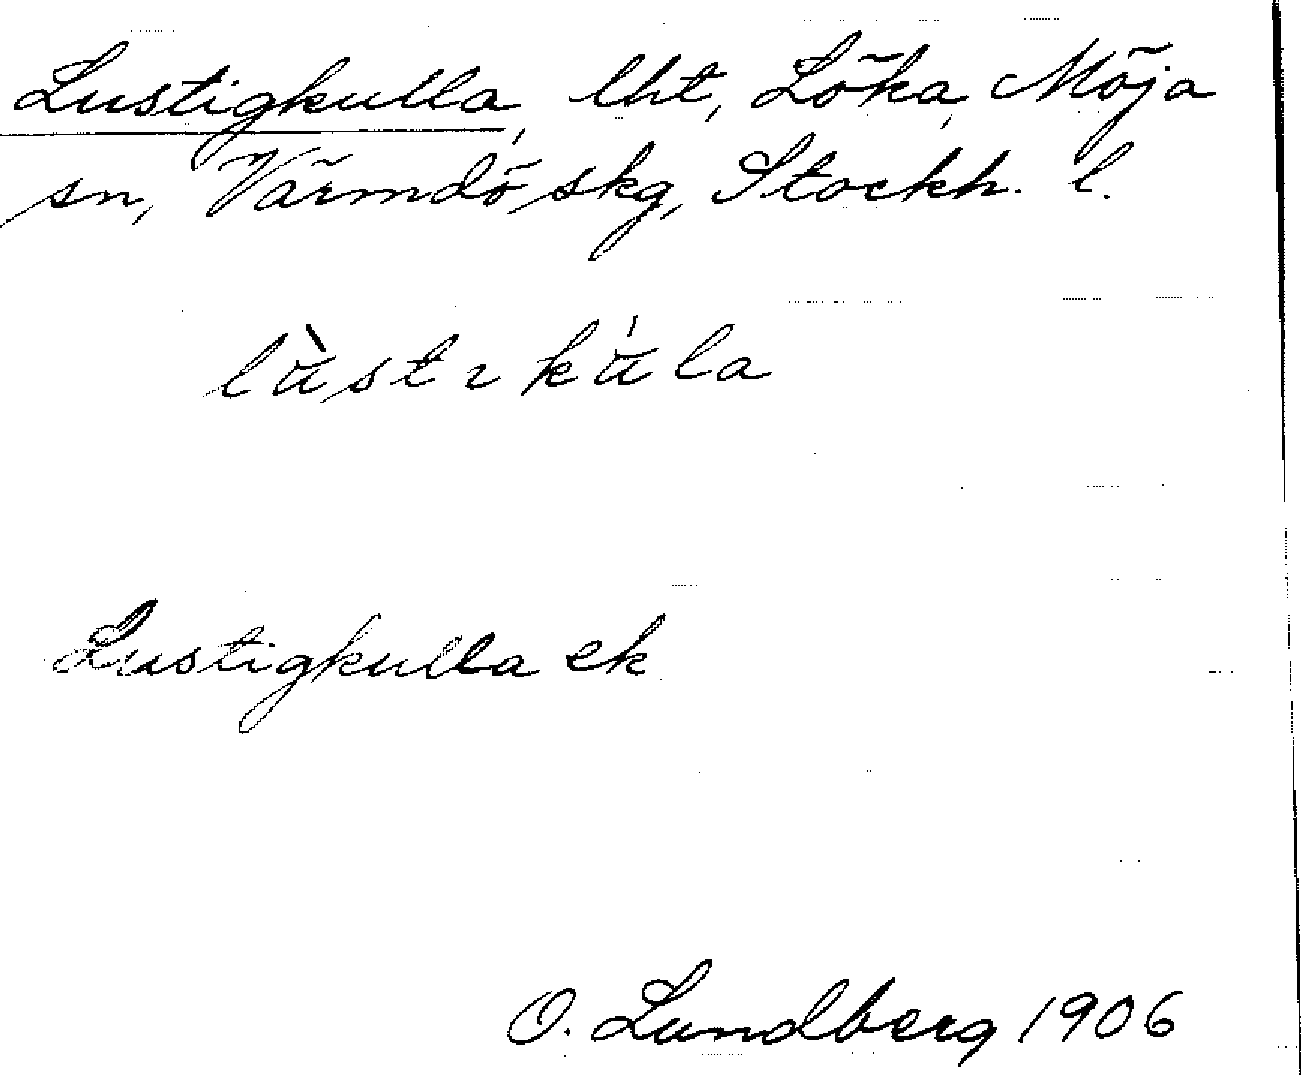 Lustigkulla, lht, Löka, Möja
sn, Värmdö skg, Stockh. l.
Lustigkulla ek
O. Lundberg 1906